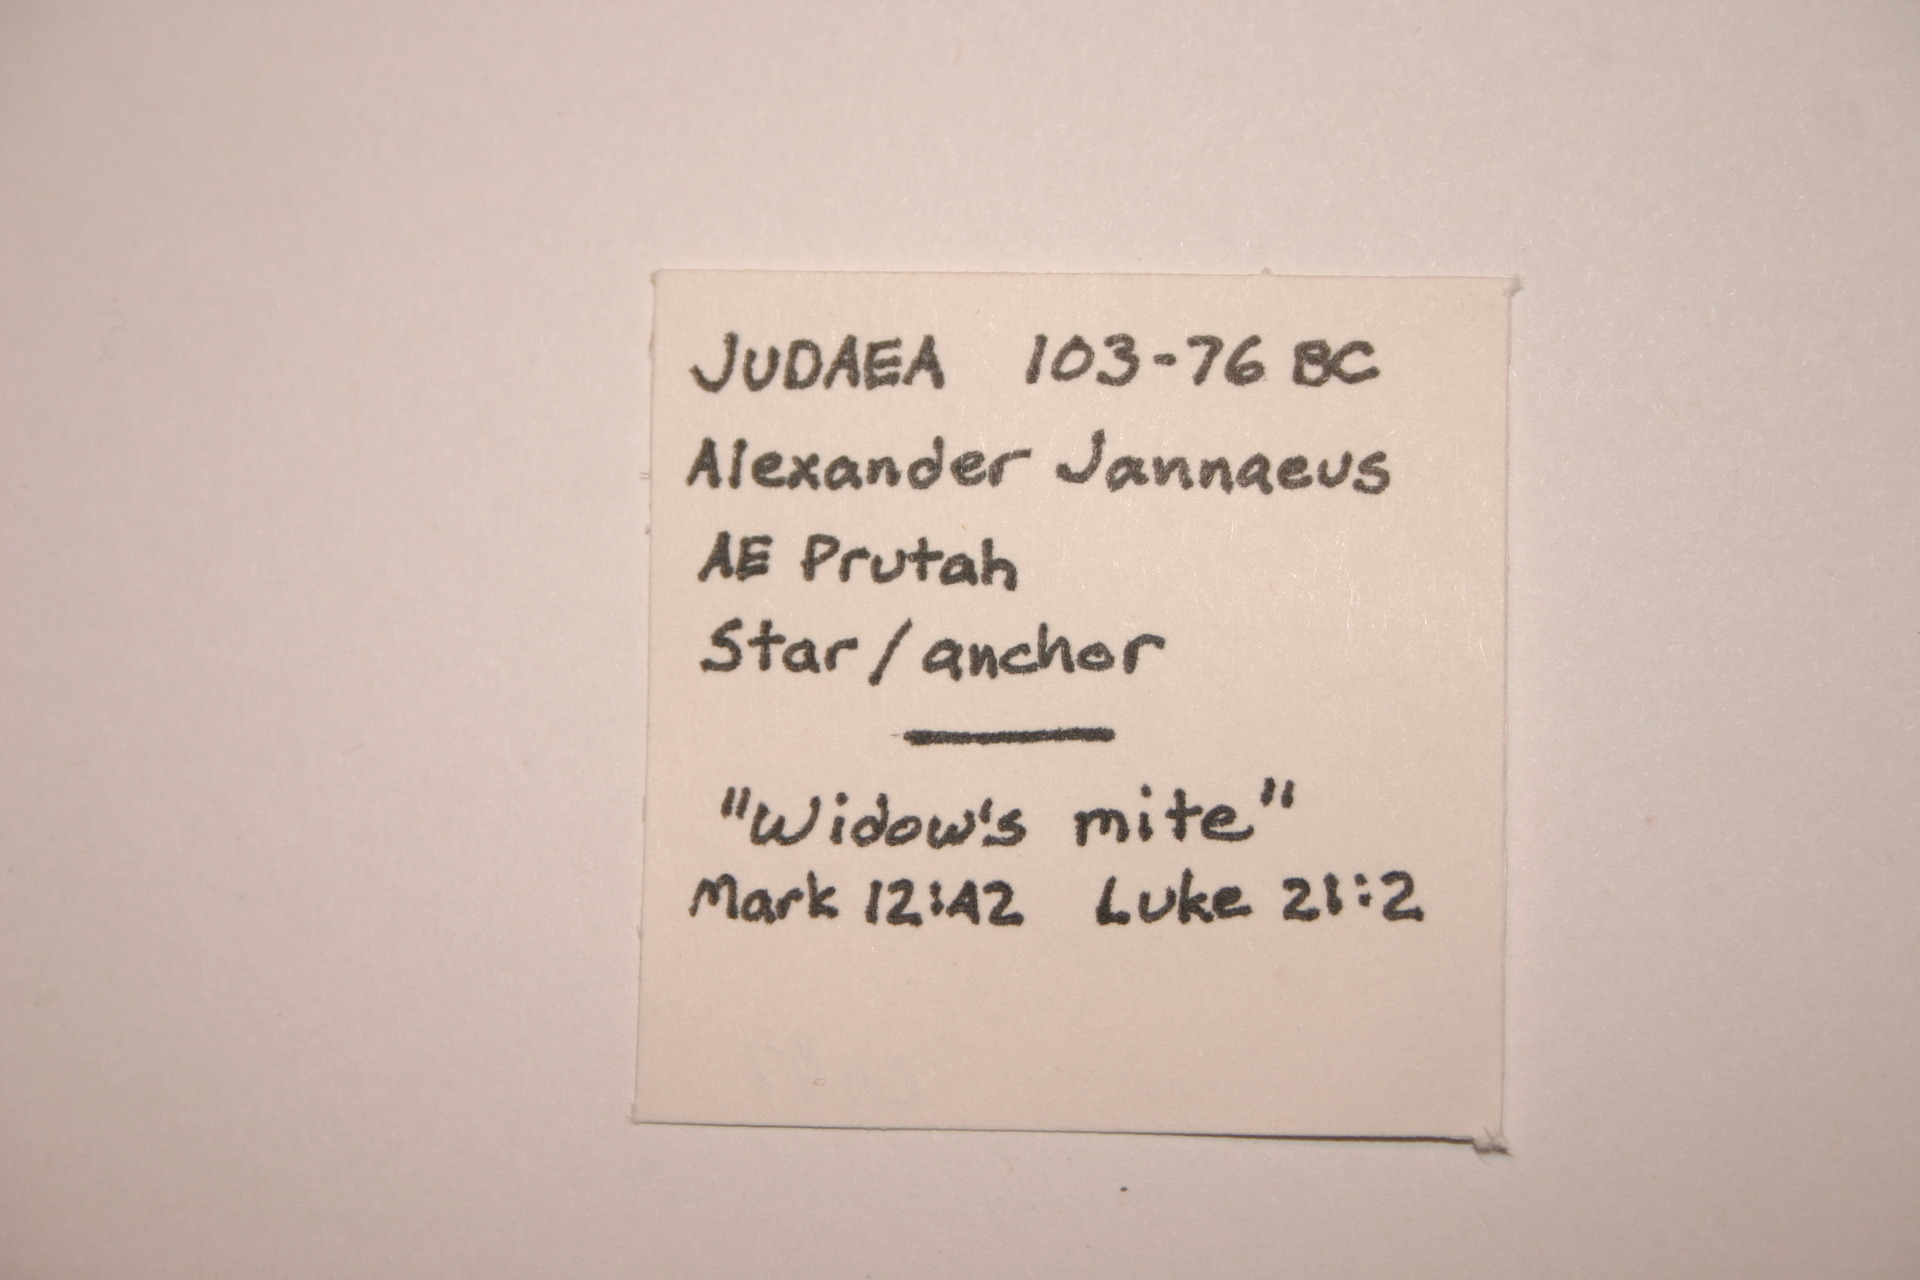 JUDAEA 103-76 BC
Alexander Jannaeus
AE Prutah
Star/anchor
"Widow's mite"
Mark 12:42 Luke 21:2